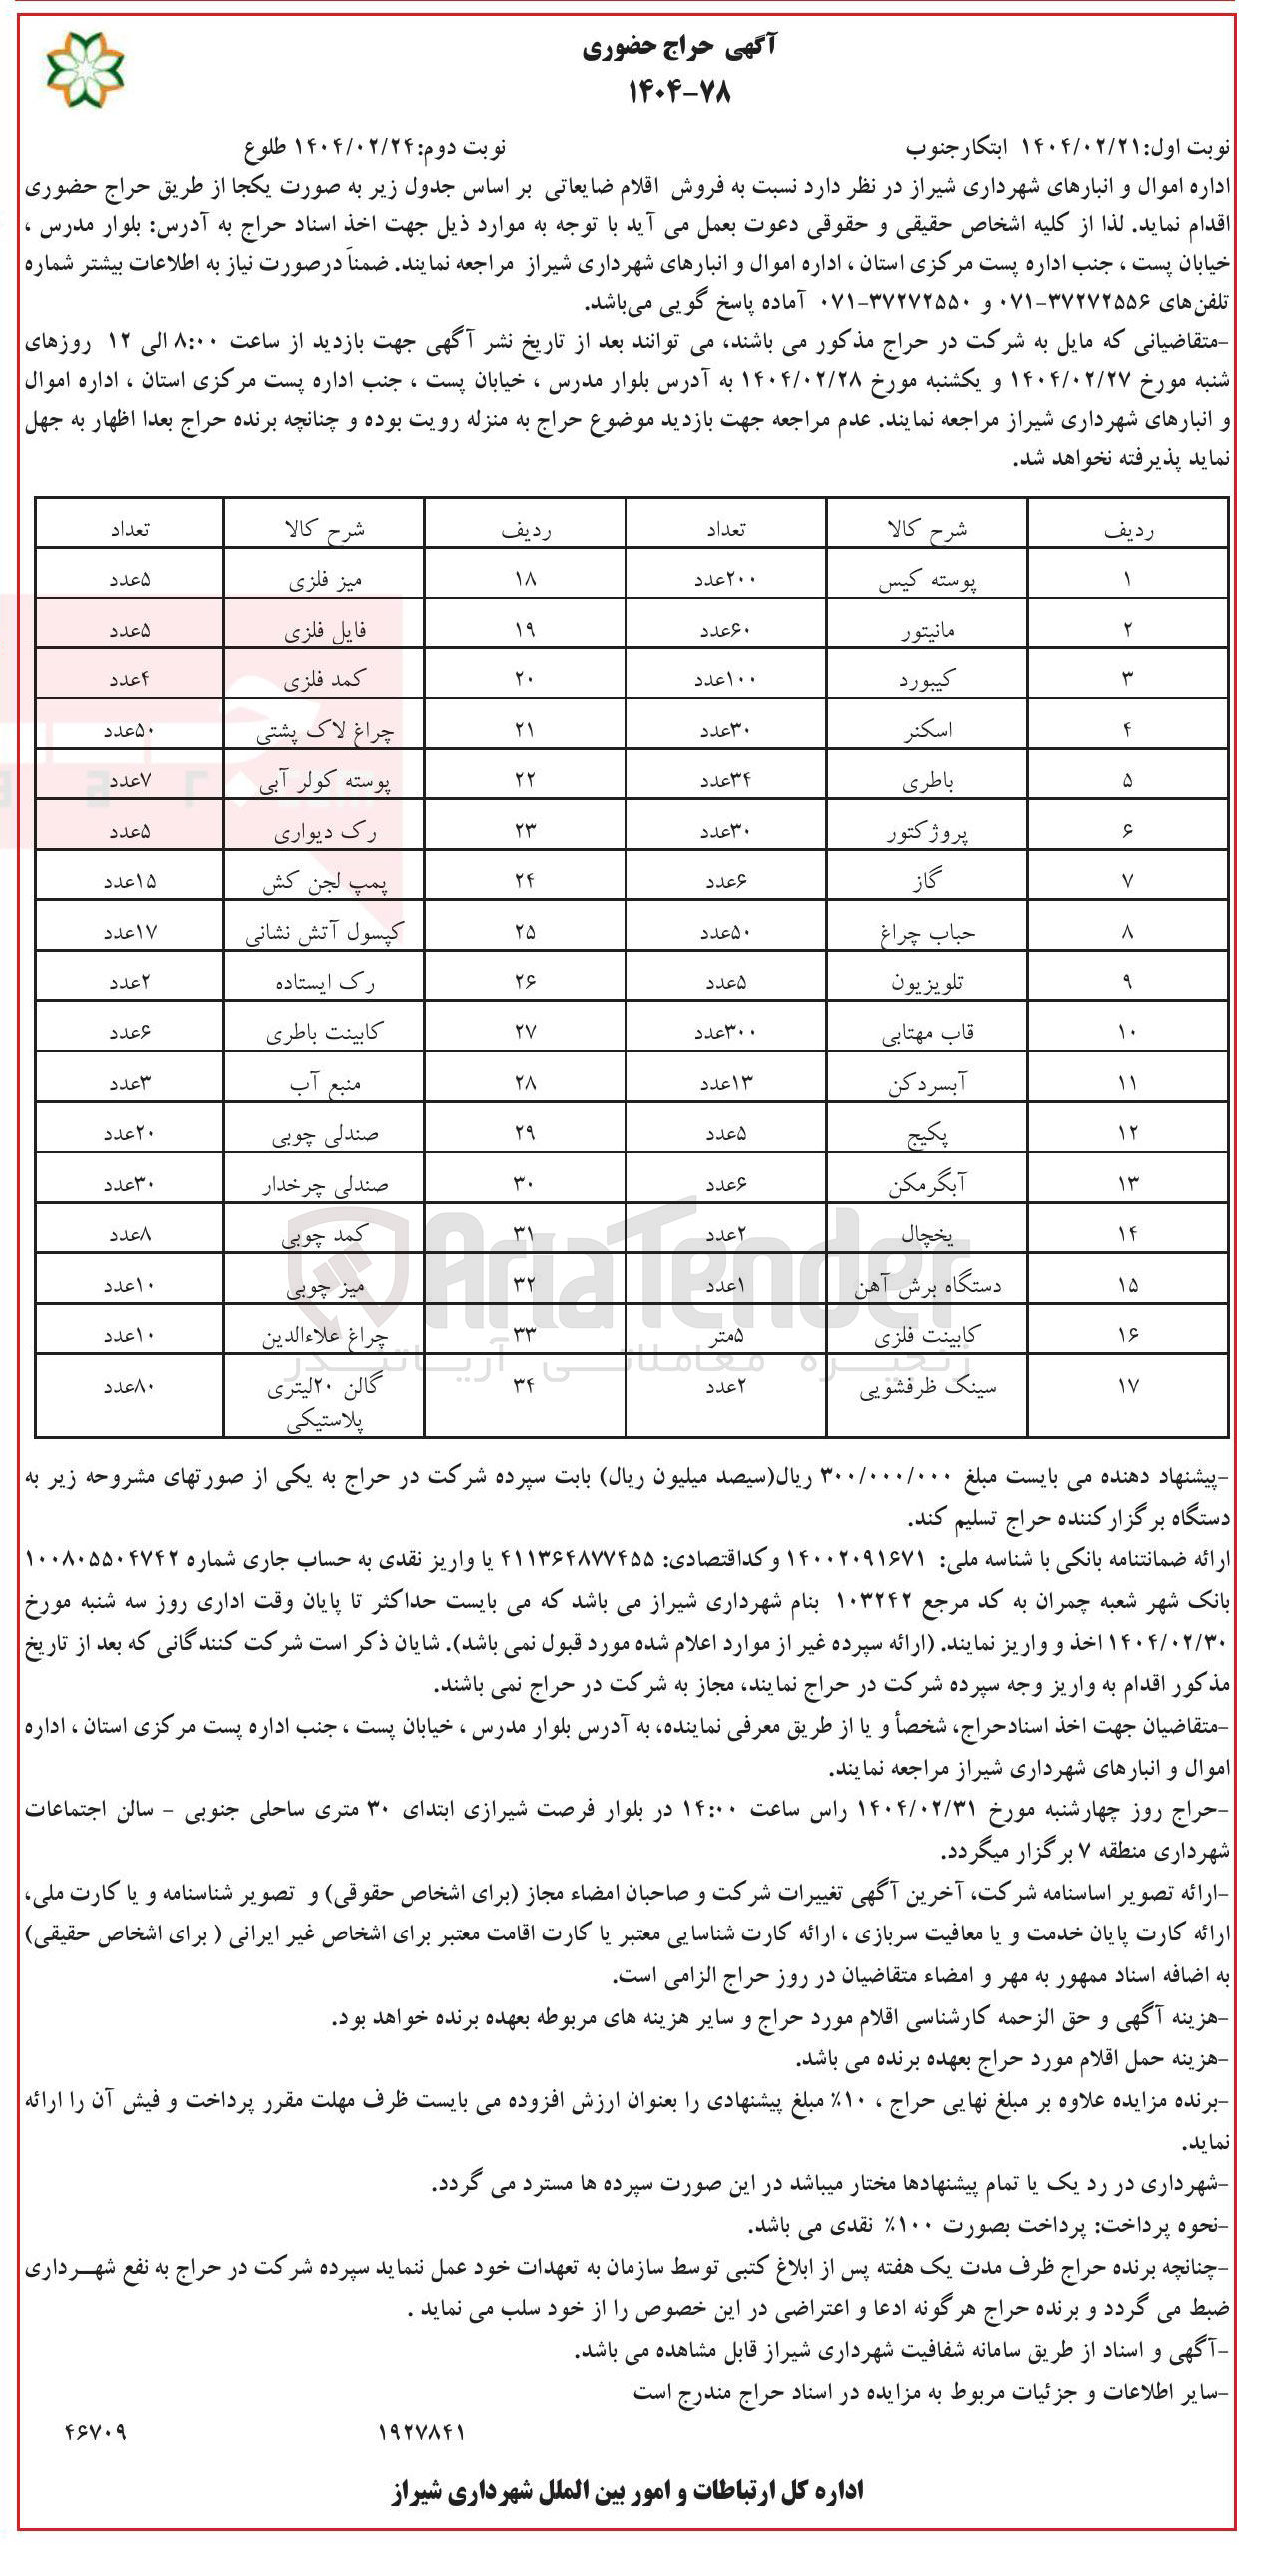 آگهی حراج حضوری
۱۴۰۴-۷۸
نوبت اول:۱۴۰۴/۰۲/۲۱ ابتکارجنوب نوبت دوم:۱۴۰۴/۰۲/۲۴ طلوع
اداره اموال و انبارهای شهرداری شیراز در نظر دارد نسبت به فروش اقلام ضایعاتی بر اساس جدول زیر به صورت یکجا از طریق حراج حضوری
اقدام نماید. لذا از کلیه اشخاص حقیقی و حقوقی دعوت بعمل می آید با توجه به موارد ذیل جهت اخذ اسناد حراج به آدرس: بلوار مدرس ،
خیابان پست ، جنب اداره پست مرکزی استان ، اداره اموال و انبارهای شهرداری شیراز مراجعه نمایند. ضمناً درصورت نیاز به اطلاعات بیشتر شماره
تلفن‌های ۳۷۲۷۲۵۵۶-۰۷۱ و ۳۷۲۷۲۵۵۰-۰۷۱ آماده پاسخ گویی می‌باشد.
-متقاضیانی که مایل به شرکت در حراج مذکور می باشند، می توانند بعد از تاریخ نشر آگهی جهت بازدید از ساعت ۸:۰۰ الی ۱۲ روزهای
شنبه مورخ ۱۴۰۴/۰۲/۲۷ و یکشنبه مورخ ۱۴۰۴/۰۲/۲۸ به آدرس بلوار مدرس ، خیابان پست ، جنب اداره پست مرکزی استان ، اداره اموال
و انبارهای شهرداری شیراز مراجعه نمایند. عدم مراجعه جهت بازدید موضوع حراج به منزله رویت بوده و چنانچه برنده حراج بعدا اظهار به جهل
نماید پذیرفته نخواهد شد.
ردیف شرح کالا تعداد ردیف شرح کالا تعداد
۱ پوسته کیس ۲۰۰عدد ۱۸ میز فلزی ۵عدد
۲ مانیتور ۶۰عدد ۱۹ فایل فلزی ۵عدد
۳ کیبورد ۱۰۰عدد ۲۰ کمد فلزی ۴عدد
۴ اسکنر ۳۰عدد ۲۱ چراغ لاک پشتی ۵۰عدد
۵ باطری ۳۴عدد ۲۲ پوسته کولر آبی ۷عدد
۶ پروژکتور ۳۰عدد ۲۳ رک دیواری ۵عدد
۷ گاز ۶عدد ۲۴ پمپ لجن کش ۱۵عدد
۸ حباب چراغ ۵۰عدد ۲۵ کپسول آتش نشانی ۱۷عدد
۹ تلویزیون ۵عدد ۲۶ رک ایستاده ۲عدد
۱۰ قاب مهتابی ۳۰۰عدد ۲۷ کابینت باطری ۶عدد
۱۱ آبسردکن ۱۳عدد ۲۸ منبع آب ۳عدد
۱۲ پکیج ۵عدد ۲۹ صندلی چوبی ۲۰عدد
۱۳ آبگرمکن ۶عدد ۳۰ صندلی چرخدار ۳۰عدد
۱۴ یخچال ۲عدد ۳۱ کمد چوبی ۸عدد
۱۵ دستگاه برش آهن ۱عدد ۳۲ میز چوبی ۱۰عدد
۱۶ کابینت فلزی ۵متر ۳۳ چراغ علاءالدین ۱۰عدد
۱۷ سینک ظرفشویی ۲عدد ۳۴ گالن ۲۰لیتری ۸۰عدد
پلاستیکی
AriaTender
زنجیره معاملاتی آریاتندر
-پیشنهاد دهنده می بایست مبلغ ۳۰۰/۰۰۰/۰۰۰ ریال(سیصد میلیون ریال) بابت سپرده شرکت در حراج به یکی از صورتهای مشروحه زیر به
دستگاه برگزارکننده حراج تسلیم کند.
ارائه ضمانتنامه بانکی با شناسه ملی: ۱۴۰۰۲۰۹۱۶۷۱ و کداقتصادی: ۴۱۱۳۶۴۸۷۷۴۵۵ یا واریز نقدی به حساب جاری شماره ۱۰۰۸۰۵۵۰۴۷۴۲
بانک شهر شعبه چمران به کد مرجع ۱۰۳۲۴۲ بنام شهرداری شیراز می باشد که می بایست حداکثر تا پایان وقت اداری روز سه شنبه مورخ
۱۴۰۴/۰۲/۳۰ اخذ و واریز نمایند. (ارائه سپرده غیر از موارد اعلام شده مورد قبول نمی باشد). شایان ذکر است شرکت کنندگانی که بعد از تاریخ
مذکور اقدام به واریز وجه سپرده شرکت در حراج نمایند، مجاز به شرکت در حراج نمی باشند.
-متقاضیان جهت اخذ اسنادحراج، شخصأ و یا از طریق معرفی نماینده، به آدرس بلوار مدرس ، خیابان پست ، جنب اداره پست مرکزی استان ، اداره
اموال و انبارهای شهرداری شیراز مراجعه نمایند.
-حراج روز چهارشنبه مورخ ۱۴۰۴/۰۲/۳۱ راس ساعت ۱۴:۰۰ در بلوار فرصت شیرازی ابتدای ۳۰ متری ساحلی جنوبی - سالن اجتماعات
شهرداری منطقه ۷ برگزار میگردد.
-ارائه تصویر اساسنامه شرکت، آخرین آگهی تغییرات شرکت و صاحبان امضاء مجاز (برای اشخاص حقوقی) و تصویر شناسنامه و یا کارت ملی،
ارائه کارت پایان خدمت و یا معافیت سربازی ، ارائه کارت شناسایی معتبر یا کارت اقامت معتبر برای اشخاص غیر ایرانی ( برای اشخاص حقیقی)
به اضافه اسناد ممهور به مهر و امضاء متقاضیان در روز حراج الزامی است.
-هزینه آگهی و حق الزحمه کارشناسی اقلام مورد حراج و سایر هزینه های مربوطه بعهده برنده خواهد بود.
-هزینه حمل اقلام مورد حراج بعهده برنده می باشد.
-برنده مزایده علاوه بر مبلغ نهایی حراج ، ۱۰٪ مبلغ پیشنهادی را بعنوان ارزش افزوده می بایست ظرف مهلت مقرر پرداخت و فیش آن را ارائه
نماید.
-شهرداری در رد یک یا تمام پیشنهادها مختار میباشد در این صورت سپرده ها مسترد می گردد.
-نحوه پرداخت: پرداخت بصورت ۱۰۰٪ نقدی می باشد.
-چنانچه برنده حراج ظرف مدت یک هفته پس از ابلاغ کتبی توسط سازمان به تعهدات خود عمل ننماید سپرده شرکت در حراج به نفع شهـــرداری
ضبط می گردد و برنده حراج هرگونه ادعا و اعتراضی در این خصوص را از خود سلب می نماید .
-آگهی و اسناد از طریق سامانه شفافیت شهرداری شیراز قابل مشاهده می باشد.
-سایر اطلاعات و جزئیات مربوط به مزایده در اسناد حراج مندرج است
۱۹۲۷۸۴۱ ۴۶۷۰۹
اداره کل ارتباطات و امور بین الملل شهرداری شیراز